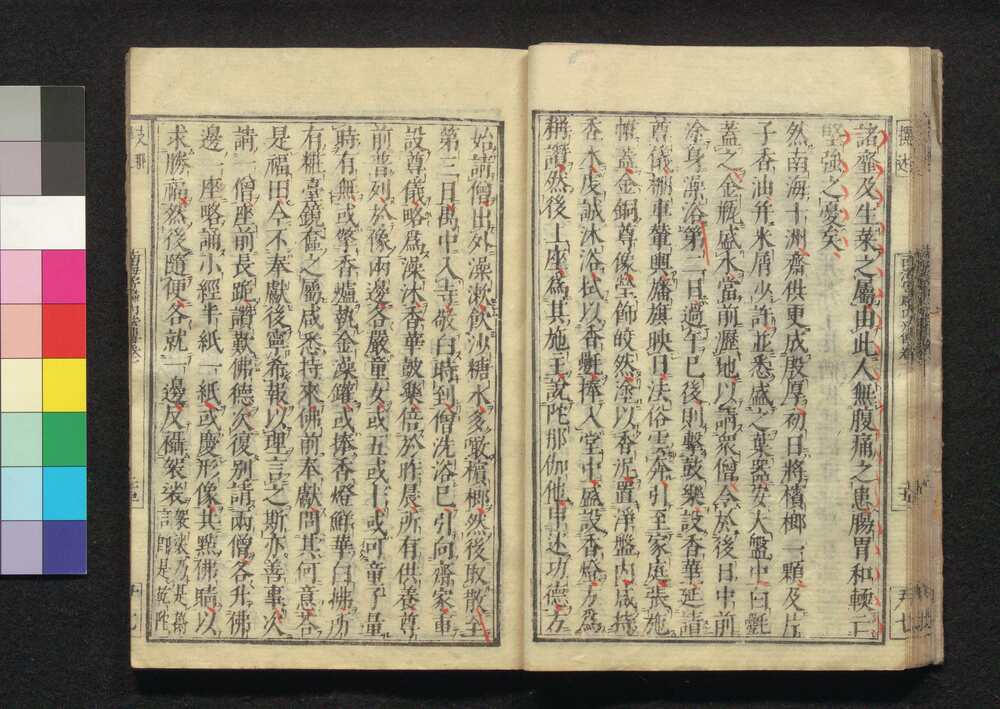 諸虀及生菜之屬由此人無腹痛之患腸胃和輭亡
堅強之憂矣
然南海十洲齋供更成殷厚初日將檳榔一顆及片
子香油并米屑少許並悉盛之葉器安大盤中白㲲
蓋之金瓶盛水當前瀝地以請衆僧令於後日中前
塗身澡浴第二日過午已後則擊鼓樂設香華延請
尊儀棚車輦輿旛旗映日法俗雲奔引至家庭張施
帷蓋金銅尊像瑩飾皎然塗以香泥置淨盤內咸持
香水虔誠沐浴拭以香㲲捧入堂中盛設香燈方爲
稱讚然後上座爲其施主說陀那伽他申述功德方
始請僧出外澡漱飮沙糖水多噉檳榔然後取散至
第三日禺中入寺敬白時到僧洗浴已引向齋家重
設尊儀略爲澡沐香華鼓樂倍於昨晨所有供養尊
前普列於像兩邊各嚴童女或五或十或可童子量
時有無或擎香爐執金澡罐或捧香燈鮮華白拂所
有粧臺鏡奩之屬咸悉持來佛前奉獻問其何意答
是福田今不奉獻後寧希報以理言之斯亦善事次
請一僧座前長跪讚歎佛德次復別請兩僧各升佛
邊一座略誦小經半紙一紙或慶形像共點佛睛以
求勝福然後隨便各就一邊反襵袈裟